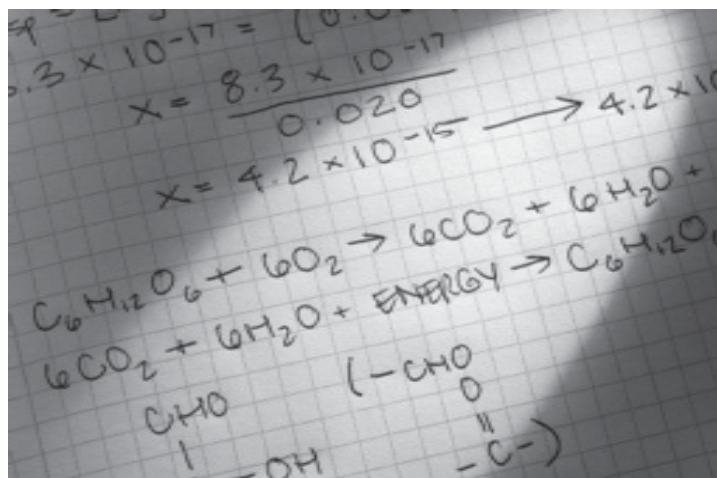 .3 × 10⁻¹⁷ = (0.0
x = 8.3 × 10⁻¹⁷
0.020
x = 4.2 × 10⁻¹⁵ → 4.2 × 10
C₆H₁₂O₆ + 6O₂ → 6CO₂ + 6H₂O +
6CO₂ + 6H₂O + ENERGY → C₆H₁₂O
CHO (-CHO
O
-OH -C-)